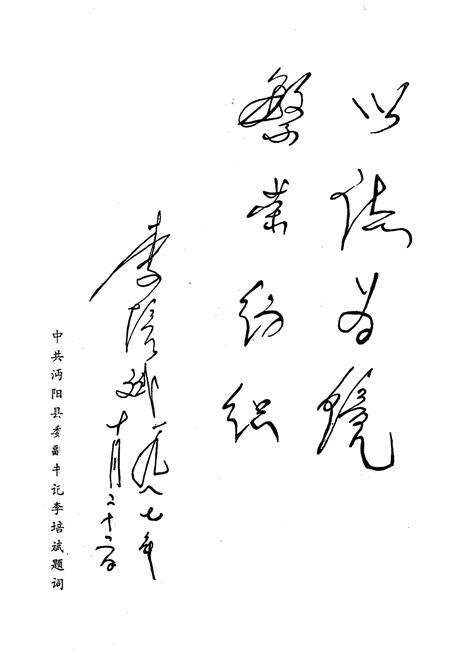 以志为镜
繁荣纺织
李培斌
一九八七年
十月二十二日
中共沔阳县委副书记李培斌题词